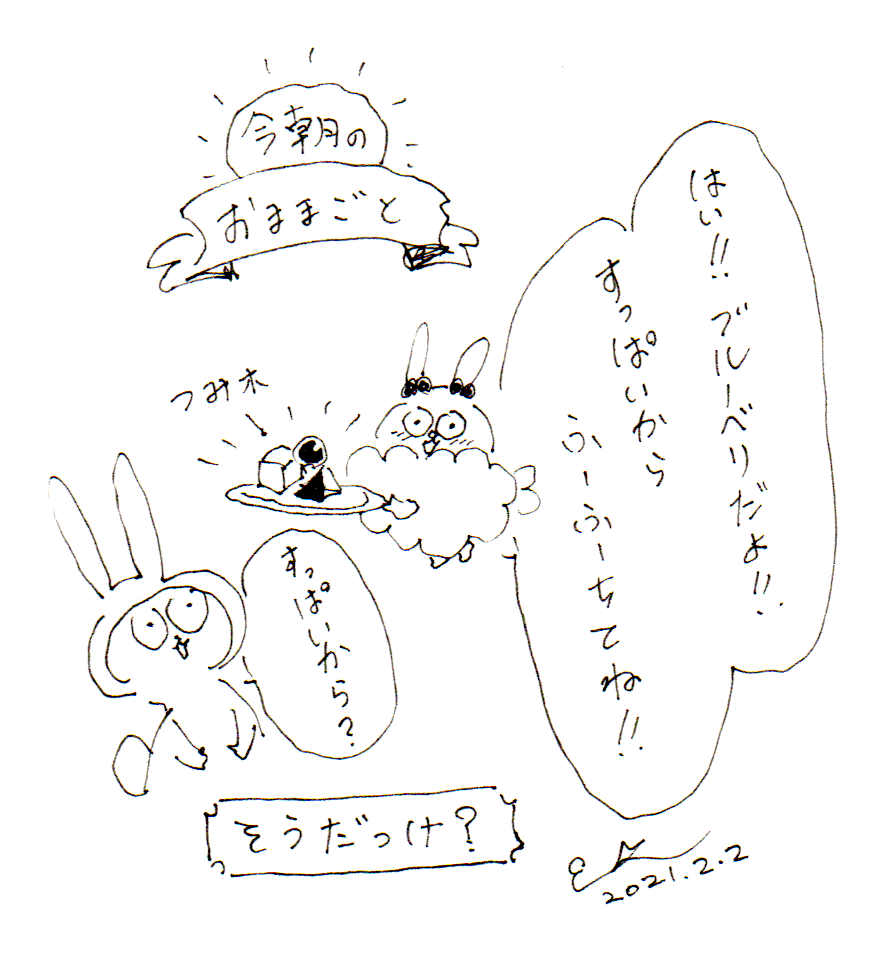 今朝の
おままごと
はい!!ブルーベリだよ!!
すっぱいから
ふーふーちてね!!
つみ木
すっぱいから?
そうだっけ?
2021.2.2